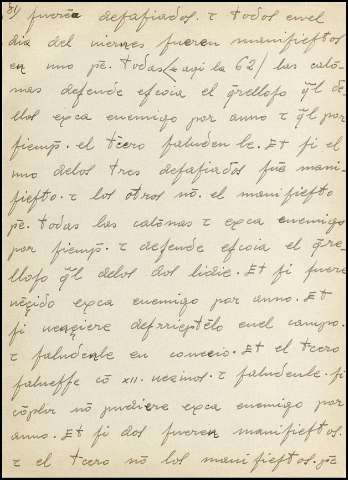 51) fuerē desafiados. τ todos enel
dia del uiernes fueren manifieſtos
en uno pē. todas (- aqi la 62/ las calō-
nas defende eſcoia el q̄relloſo q̄l de-
llos exca enemigo por anno τ q̄l por
ſiemp̄. el tc̄ero ſaluden le. Et ſi el
uno delos tres desafiados fuē mani-
fieſto. τ los otros nō. el manifieſto
pē. todas las calōnas τ exca enemigo
por ſiemp̄. τ defende eſcoia el q̄re-
lloſo q̄l delos dos lidie. Et ſi fuere
uēçido exca enemigo por anno. Et
ſi uençiere desrrieptēlo enel campo.
τ ſaludenle en conceio. Et el tc̄ero
ſalueſſe cō xii. uezinos. τ ſaludenle. ſi
cōplir nō pudiere exca enemigo por
anno. Et ſi dos fueren manifieſtos.
τ el tc̄ero nō los manifieſtos. pē